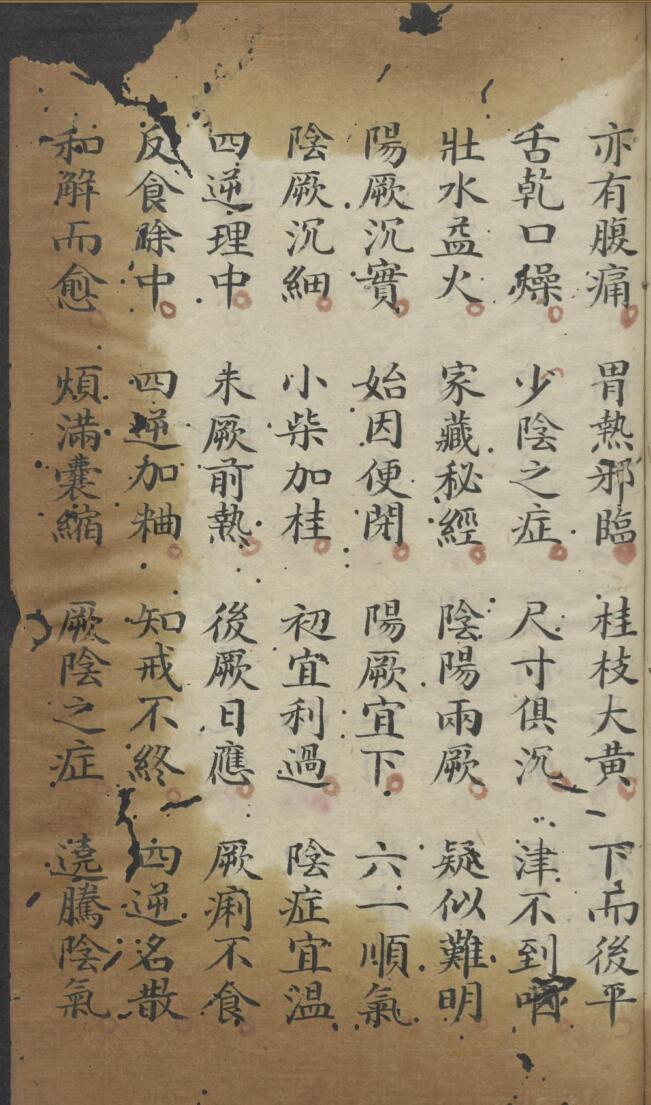 亦有腹痛 胃熱邪臨 桂枝大黃 下而後平
舌乾口燥 少陰之症 尺寸俱沉 津不到咽
壯水益火 家藏秘經 陰陽兩厥 疑似難明
陽厥沉實 始因便閉 陽厥宜下 六一順氣
陰厥沉細 小柴加桂 初宜利過 陰症宜温
四逆理中 未厥前熱 後厥日應 厥痢不食
反食除中 四逆加粬 知戒不終 四逆名散
和解而愈 煩滿囊縮 厥陰之症 遶騰陰氣